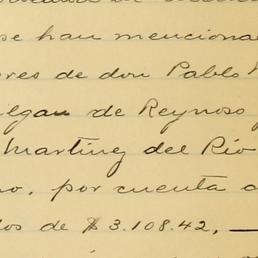 se han mencional
res de don Pablo
lgau de Reynoso
Martinez del Rio
no, por cuenta
os de $3.108.42,